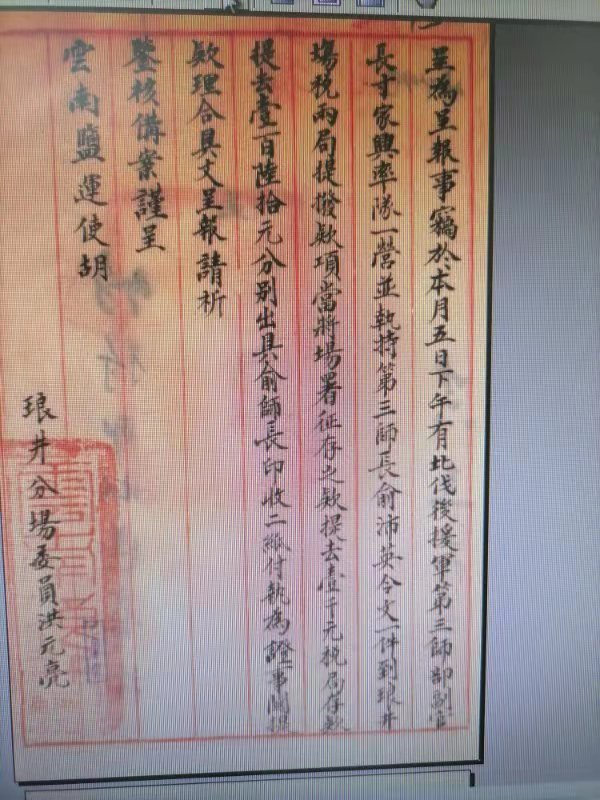 呈為呈報事竊於本月五日下午有北伐後援軍第三師部副官
長寸家興率隊一營並執持第三師長俞沛英令文一件到琅井
塲稅兩局提撥欵項當將塲署征存之欵提去壹千元稅局存欵
提去壹百陸拾元分別出具俞師長印收二紙付執為證事關提
欵理合具文呈報請祈
鑒核備案謹呈
雲南鹽運使胡
琅井分塲委員洪元亮